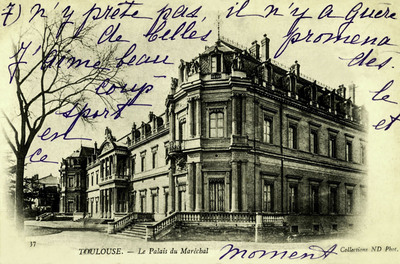 7) n'y prête pas, il n'y a guère
de belles promena
des.
J'aime beau
coup
le
sport
et
en
ce
moment
37
TOULOUSE. — Le Palais du Maréchal
Collections ND Phot.